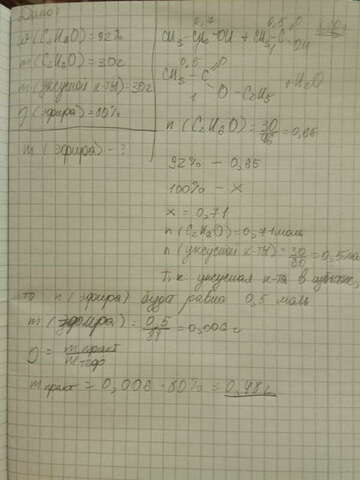 Дано:
ω(C₂H₆O)=92%
m(C₂H₆O)=30г
m(уксусной к-ты)=30г
η(эфира)=80%
m(эфира)-?
CH₃-CH₂-OH + CH₃-C
O
OH
0,5
CH₃-C
O
O-C₂H₅
+H₂O
1
n(C₂H₆O)=30/46=0,65
92% - 0,65
100% - x
x = 0,71
n(C₂H₆O)=0,71моль
n(уксусной к-ты)=30/60=0,5мол
Т.к уксусная к-та в
то n(эфира) будет равна 0,5 моль
m(эфира)=0,5/=0,006г
η = m практ/m теор
m практ = 0,006·80% = 0,48г